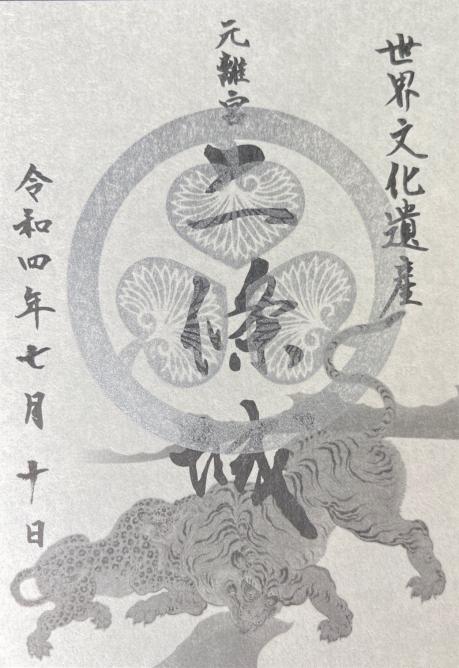 世界文化遺産
元離宮
二條城
令和四年七月十日